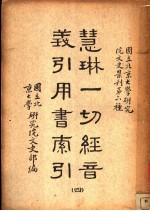 國立北京大學研究
院文史叢刊第六種
慧琳一切經音
義引用書索引
(四)
國立北
京大學
研究院文史部編